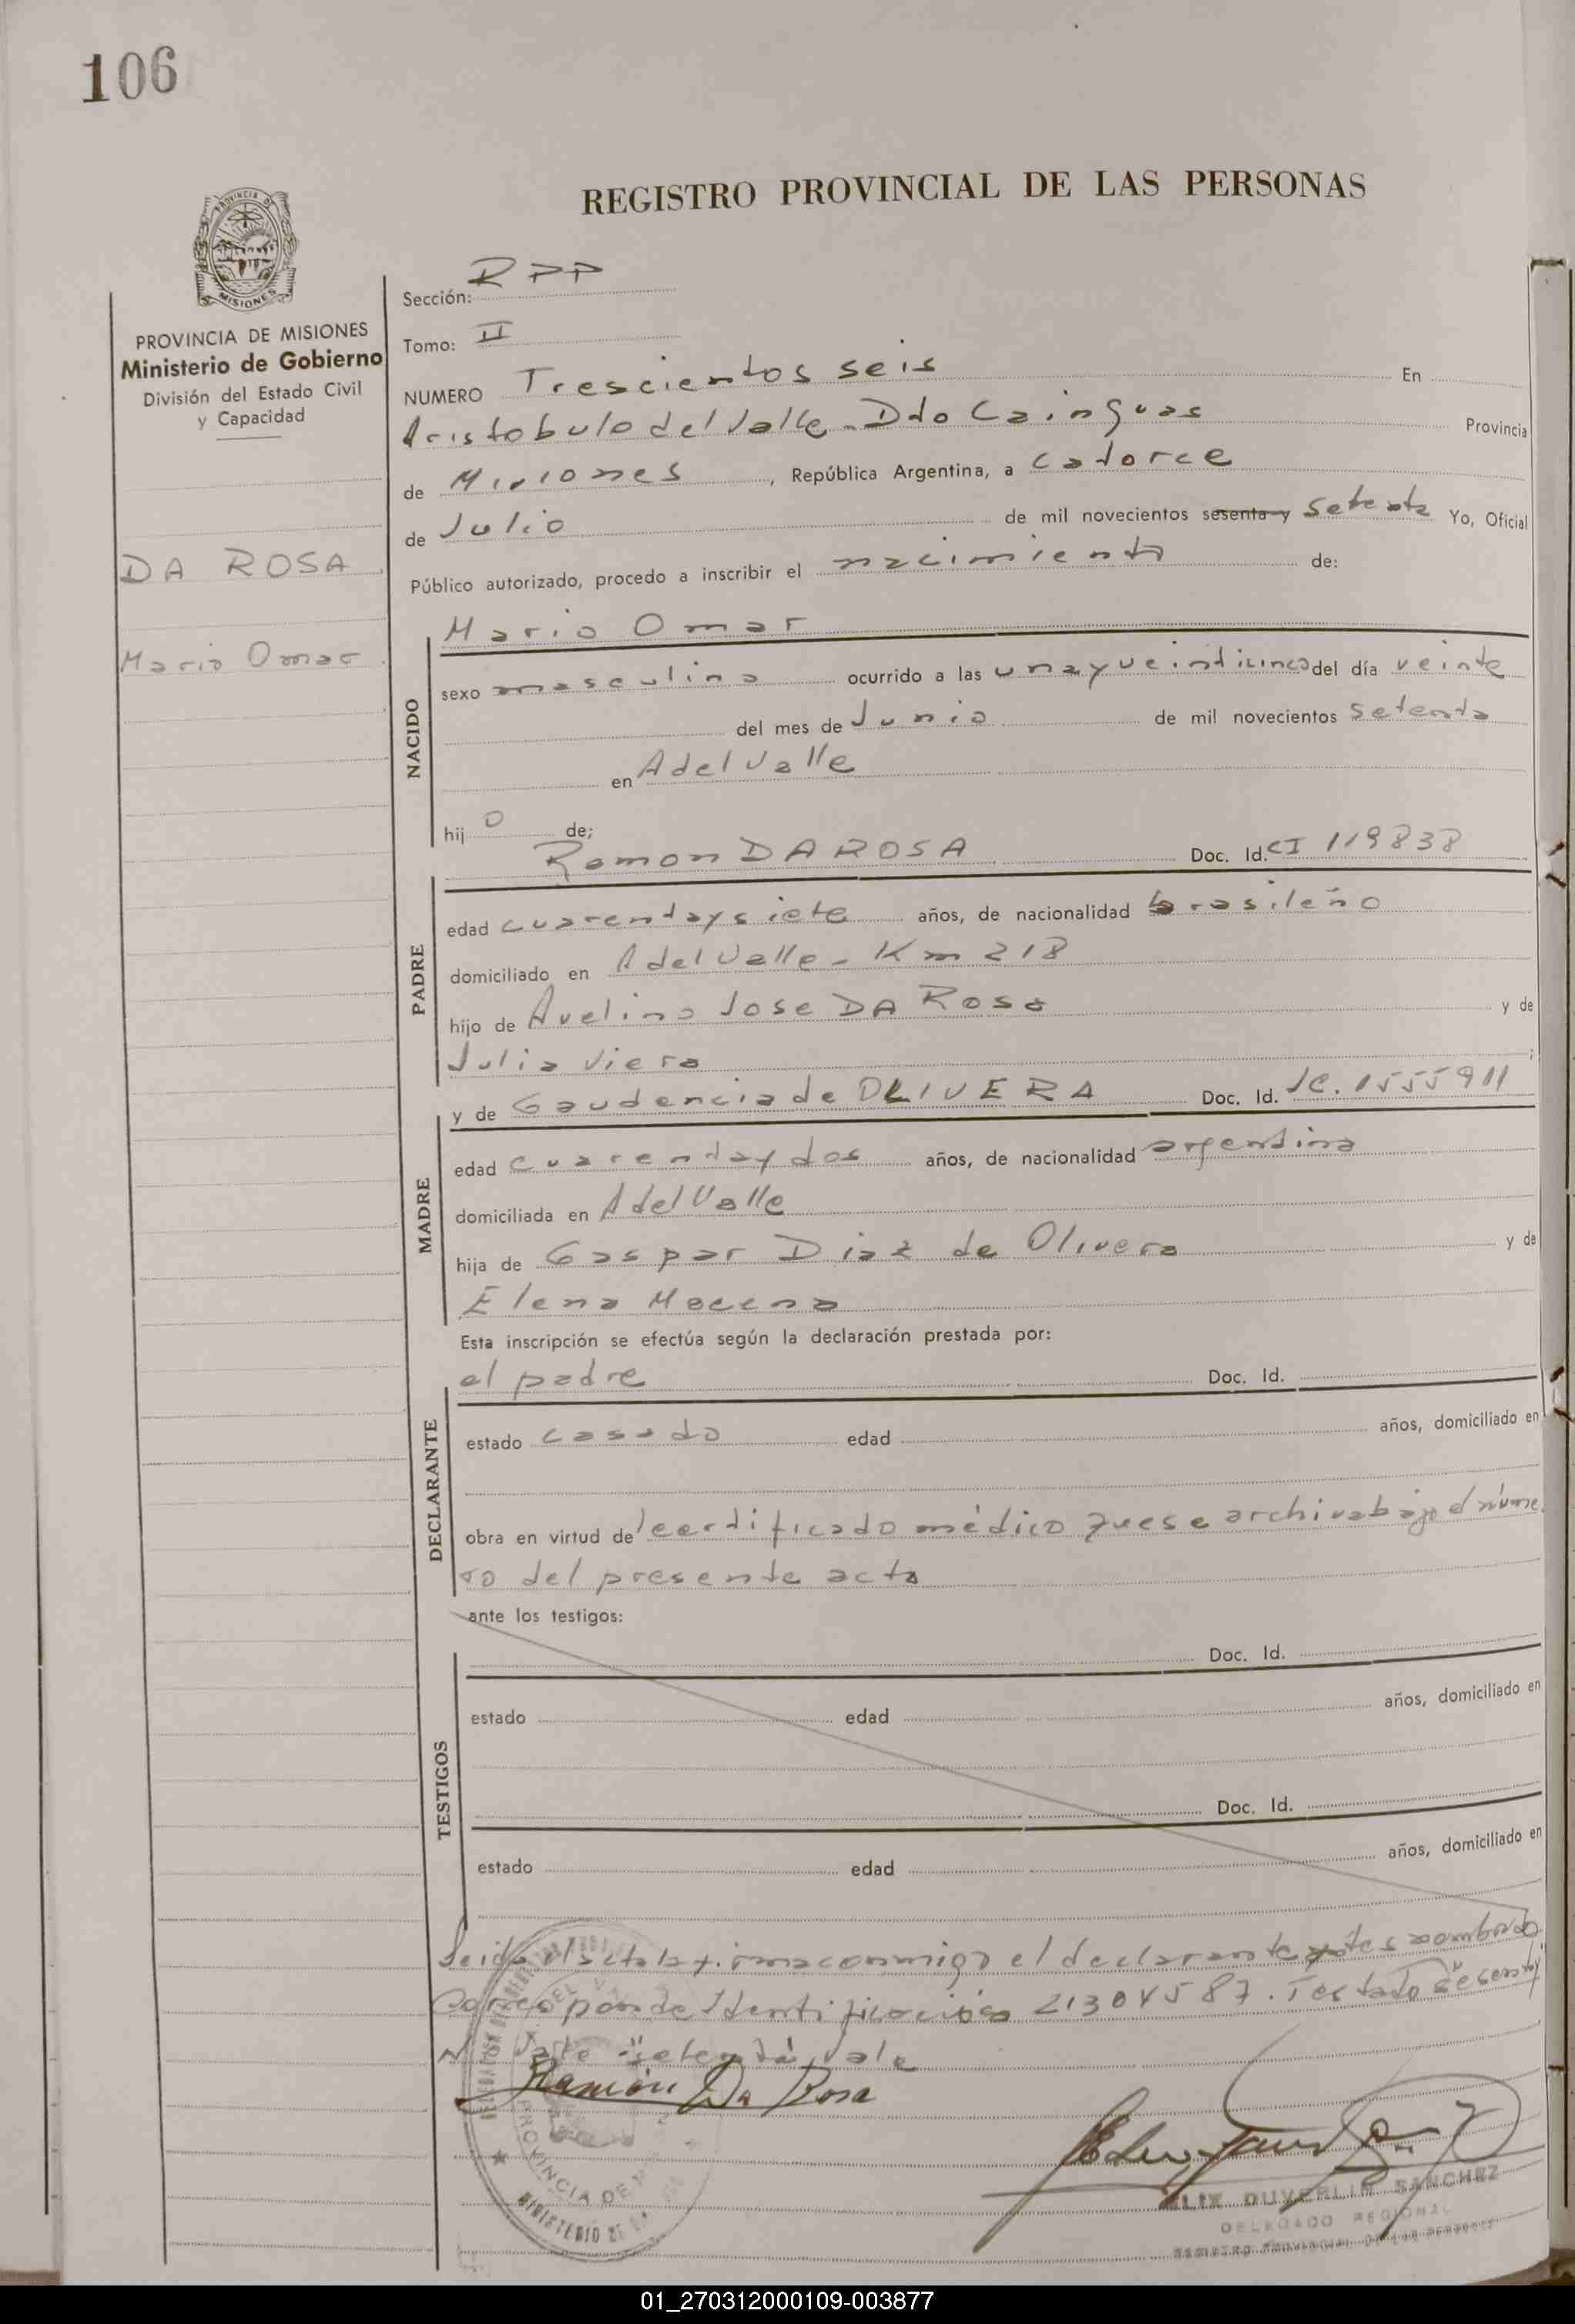 106
REGISTRO PROVINCIAL DE LAS PERSONAS
PROVINCIA DE MISIONES
Ministerio de Gobierno
División del Estado Civil
y Capacidad
DA ROSA
Mario Omar
Sección: RPP
Tomo: II
NUMERO Trescientos seis En
Aristobulo del Valle - Dto Cainguas Provincia
de Misiones, República Argentina, a Catorce
de Julio de mil novecientos sesenta y setenta Yo, Oficial
Público autorizado, procedo a inscribir el nacimiento de:
NACIDO
Mario Omar
sexo masculino ocurrido a las una y veinticinco del día veinte
del mes de Junio de mil novecientos setenta
en A del Valle
hijo de;
PADRE
Ramon DA ROSA Doc. Id. CI 119838
edad cuarenta y siete años, de nacionalidad brasileño
domiciliado en A del Valle - Km 218
hijo de Avelino Jose DA Rosa y de
Julia Viera;
MADRE
y de Gaudencia de OLIVERA Doc. Id. LC. 1555911
edad cuarenta y dos años, de nacionalidad argentina
domiciliada en A del Valle
hija de Gaspar Diaz de Olivera y de
Elena
Esta inscripción se efectúa según la declaración prestada por:
DECLARANTE
el padre Doc. Id.
estado casado edad años, domiciliado en
obra en virtud del certificado médico que se archiva bajo el núme
ro del presente acta
ante los testigos:
TESTIGOS
Doc. Id.
estado edad años, domiciliado en
Doc. Id.
estado edad años, domiciliado en
Leida el acta la firma conmigo el declarante antes nombrado
Corresponde Identificación 21304587. Testado "sesenta y"
"setenta" vale
Ramón Da Rosa
FELIX DUVERLIN SANCHEZ
DELEGADO REGIONAL
REGISTRO PROVINCIAL DE LAS PERSONAS
PROVINCIA DE
MINISTERIO DE
01_270312000109-003877